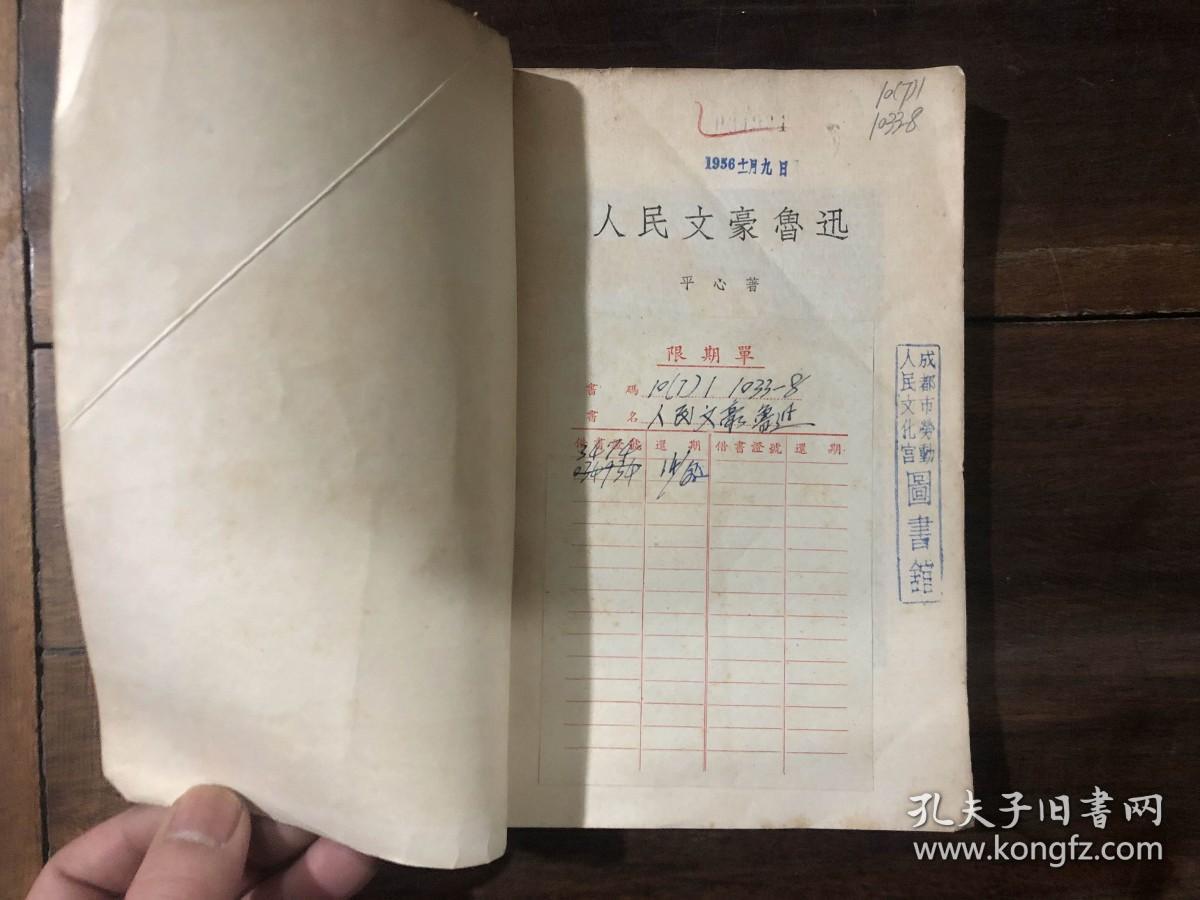 10(7)1
1033-8
1956十一月九日
人民文豪魯迅
平心著
限期單
書碼 10(7)1 1033-8
書名 人民文豪魯迅
借書證號 還期 借書證號 還期
3474
成都市勞動
人民文化宮
圖書館
孔夫子旧書网
www.kongfz.com